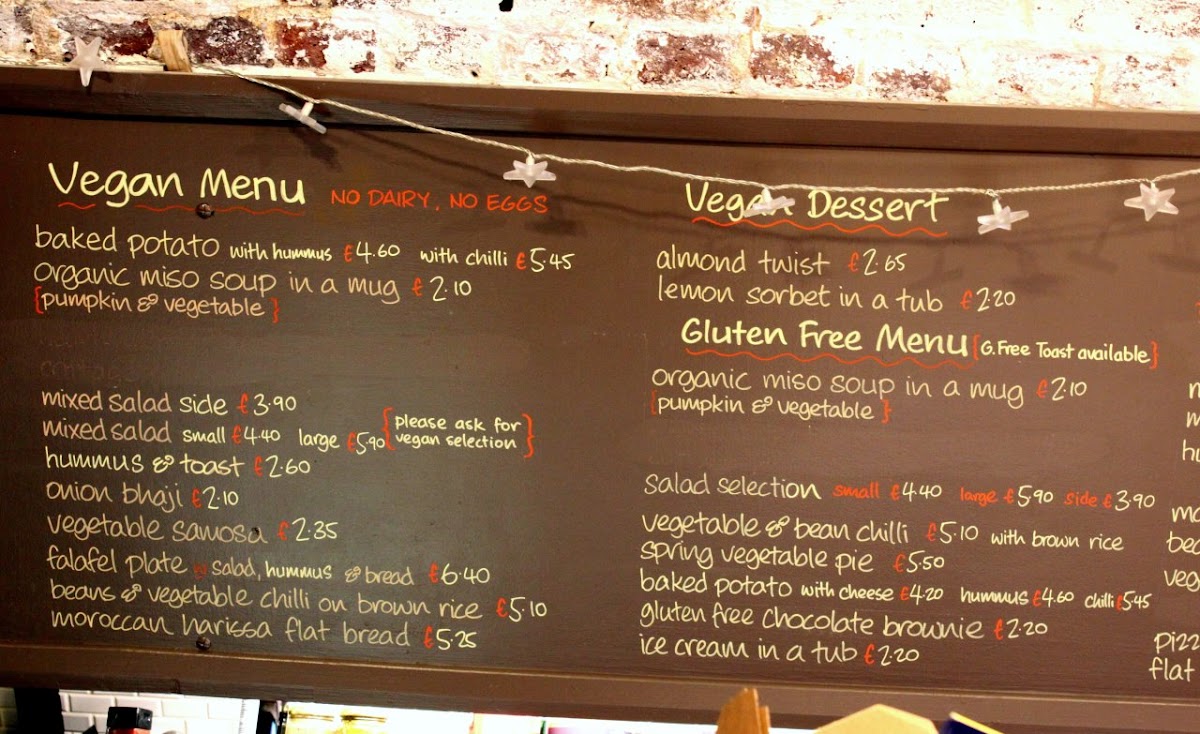 Vegan Menu NO DAIRY, NO EGGS
baked potato with hummus £4.60 with chilli £5.45
organic miso soup in a mug £2.10
{pumpkin & vegetable}
mixed salad side £3.90
mixed salad small £4.40 large £5.90 {please ask for
vegan selection}
hummus & toast £2.60
onion bhaji £2.10
vegetable samosa £2.35
falafel plate w salad, hummus & bread £6.40
beans & vegetable chilli on brown rice £5.10
moroccan harissa flat bread £5.25
Vegan Dessert
almond twist £2.65
lemon sorbet in a tub £2.20
Gluten Free Menu {G.Free Toast available}
organic miso soup in a mug £2.10
{pumpkin & vegetable}
salad selection small £4.40 large £5.90 side £3.90
vegetable & bean chilli £5.10 with brown rice
spring vegetable pie £5.50
baked potato with cheese £4.20 hummus £4.60 chilli £5.45
gluten free chocolate brownie £2.20
ice cream in a tub £2.20
flat